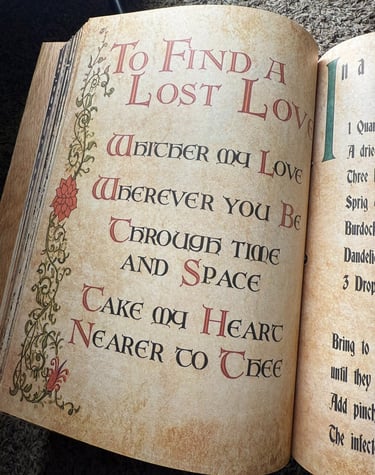 To Find a
Lost Love
Whither my Love
Wherever you Be
Through time
and Space
Take my Heart
Nearer to Thee
In a
1 Quar
A drie
Three
Sprig
Burdock
Dandeli
3 Drop
Bring to
until they
Add pinch
The infect